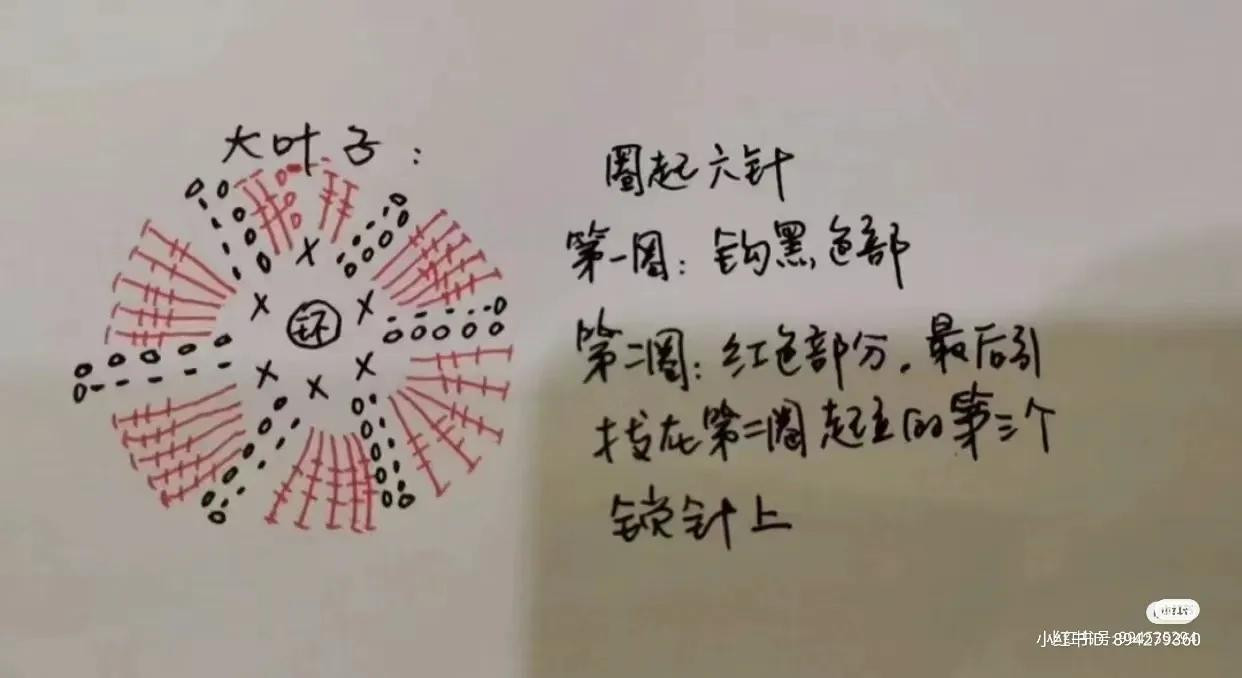 大叶子：
环
圈起六针
第一圈：钩黑色部
第二圈：红色部分，最后引
拔在第二圈起立的第三个
锁针上
小红书
894279360